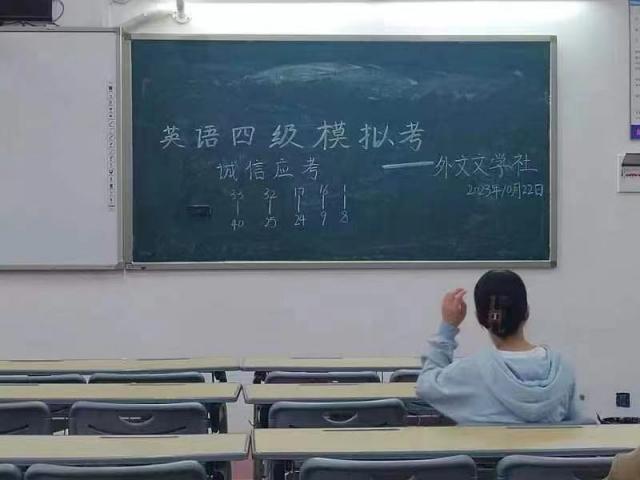 英语四级模拟考
诚信应考
——外文文学社
2023年10月22日
33 32 17 16 1
40 25 24 9 8